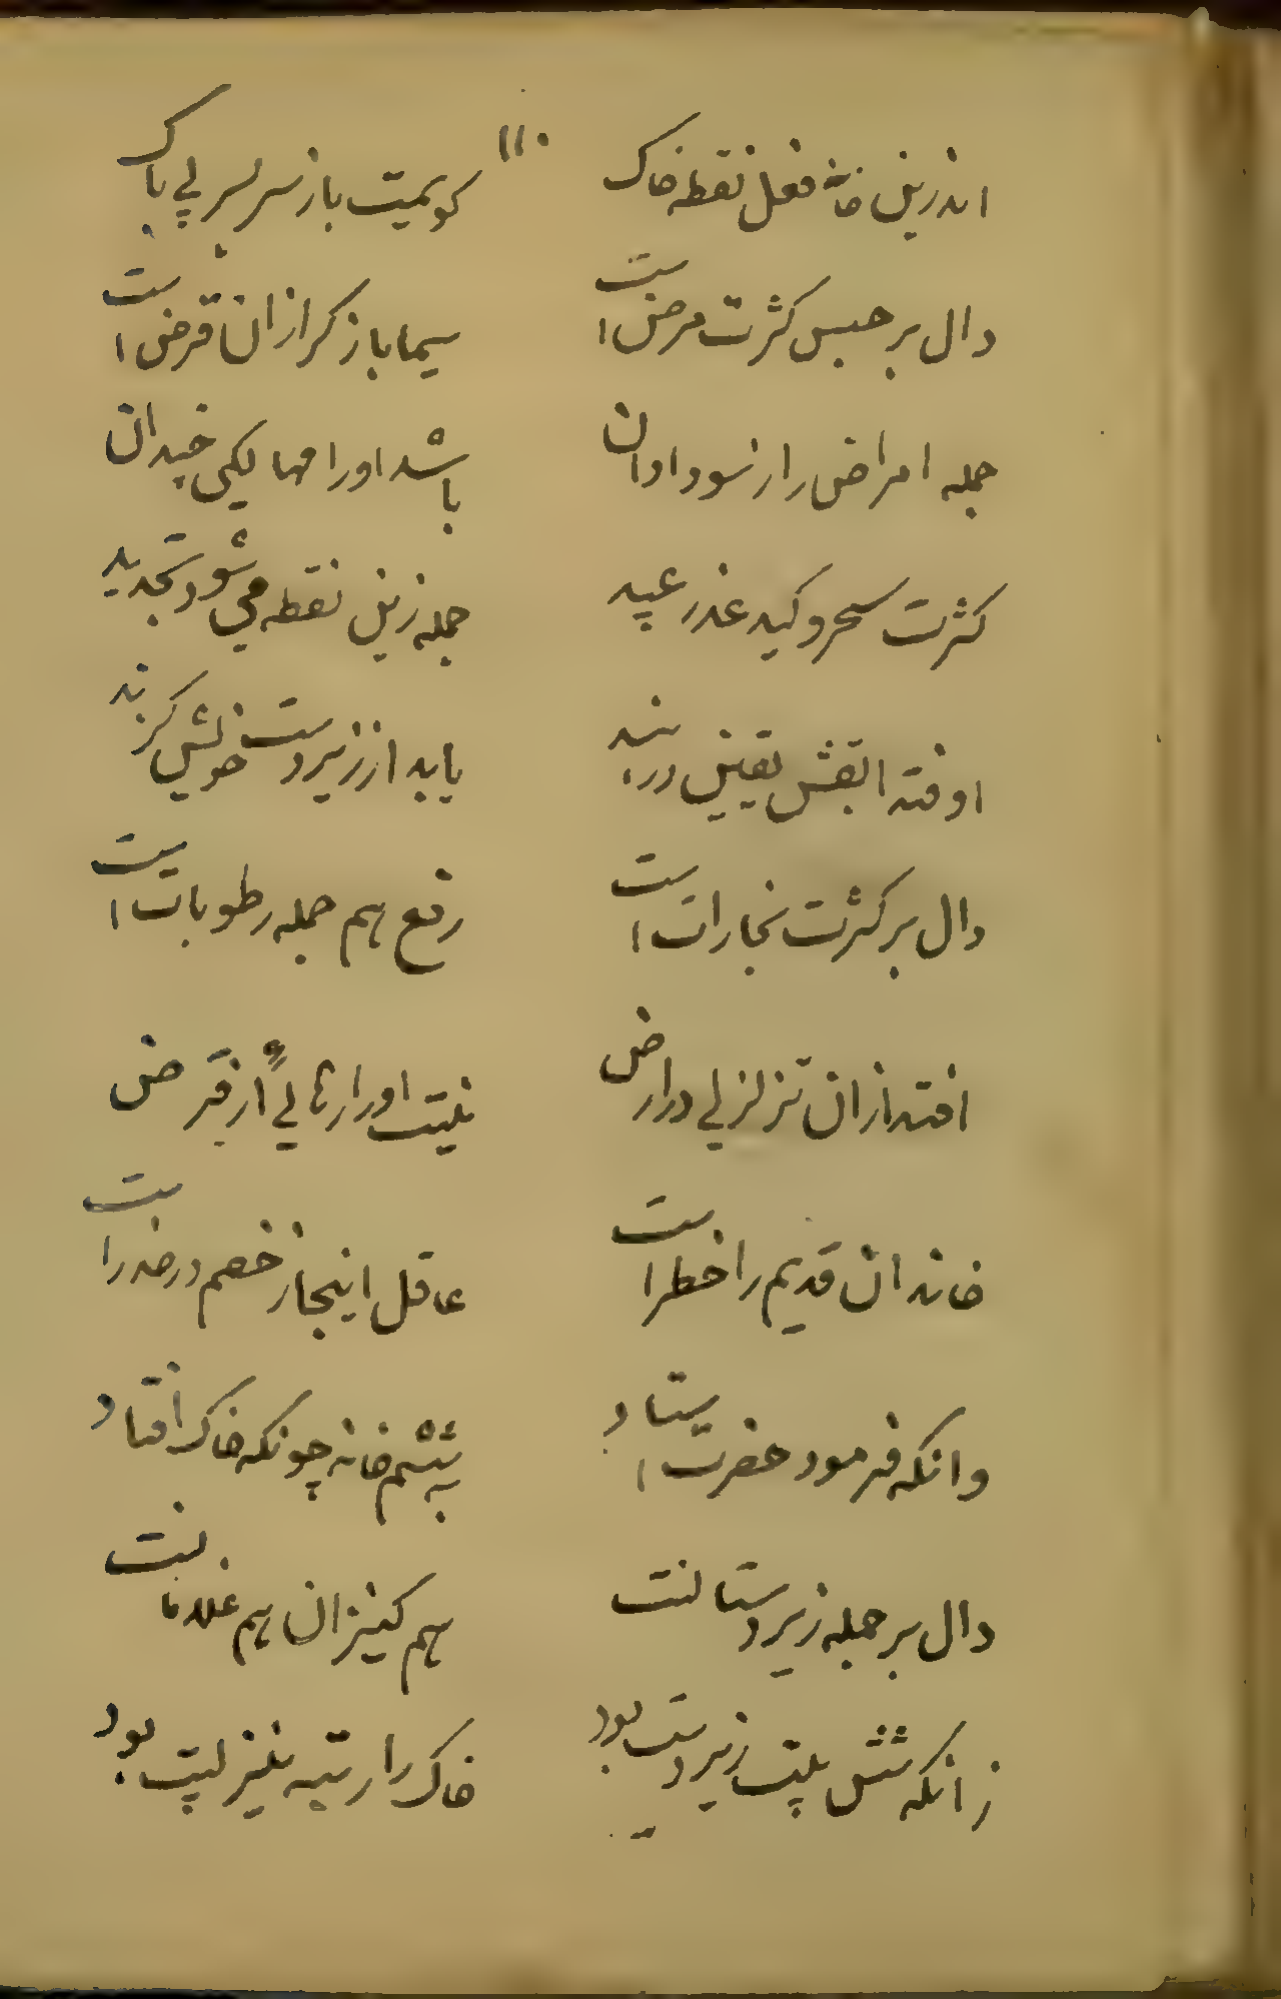 اندرین خانه فعل نقطه خاک ۱۱۰ کویمیت باز سربسر بی باک
دال بر حبس کثرت مرض است سیما باز کر ازان قرض است
جمله امراض را ز سودا دان باشد او را مهالکی چندان
کثرت سحر و کید غدر عبید جمله زین نقطه می شود تجدید
اوفتد یقین در بند یابد از زیردست خویش کزند
دال بر کثرت بخارات است رفع هم جمله رطوبات است
افتد ازان تزلزلی در ارض نیست او را رهائی از قرض
خاندان قدیم را خطر است عاقل اینجا ز خصم در حذر است
وانکه فرمود حضرت استاد بششم خانه چونکه خاک افتاد
دال بر جمله زیردستانست هم کنیزان هم غلامانست
زانکه شش بیت زیردست بود خاک را رتبه نیز پست بود